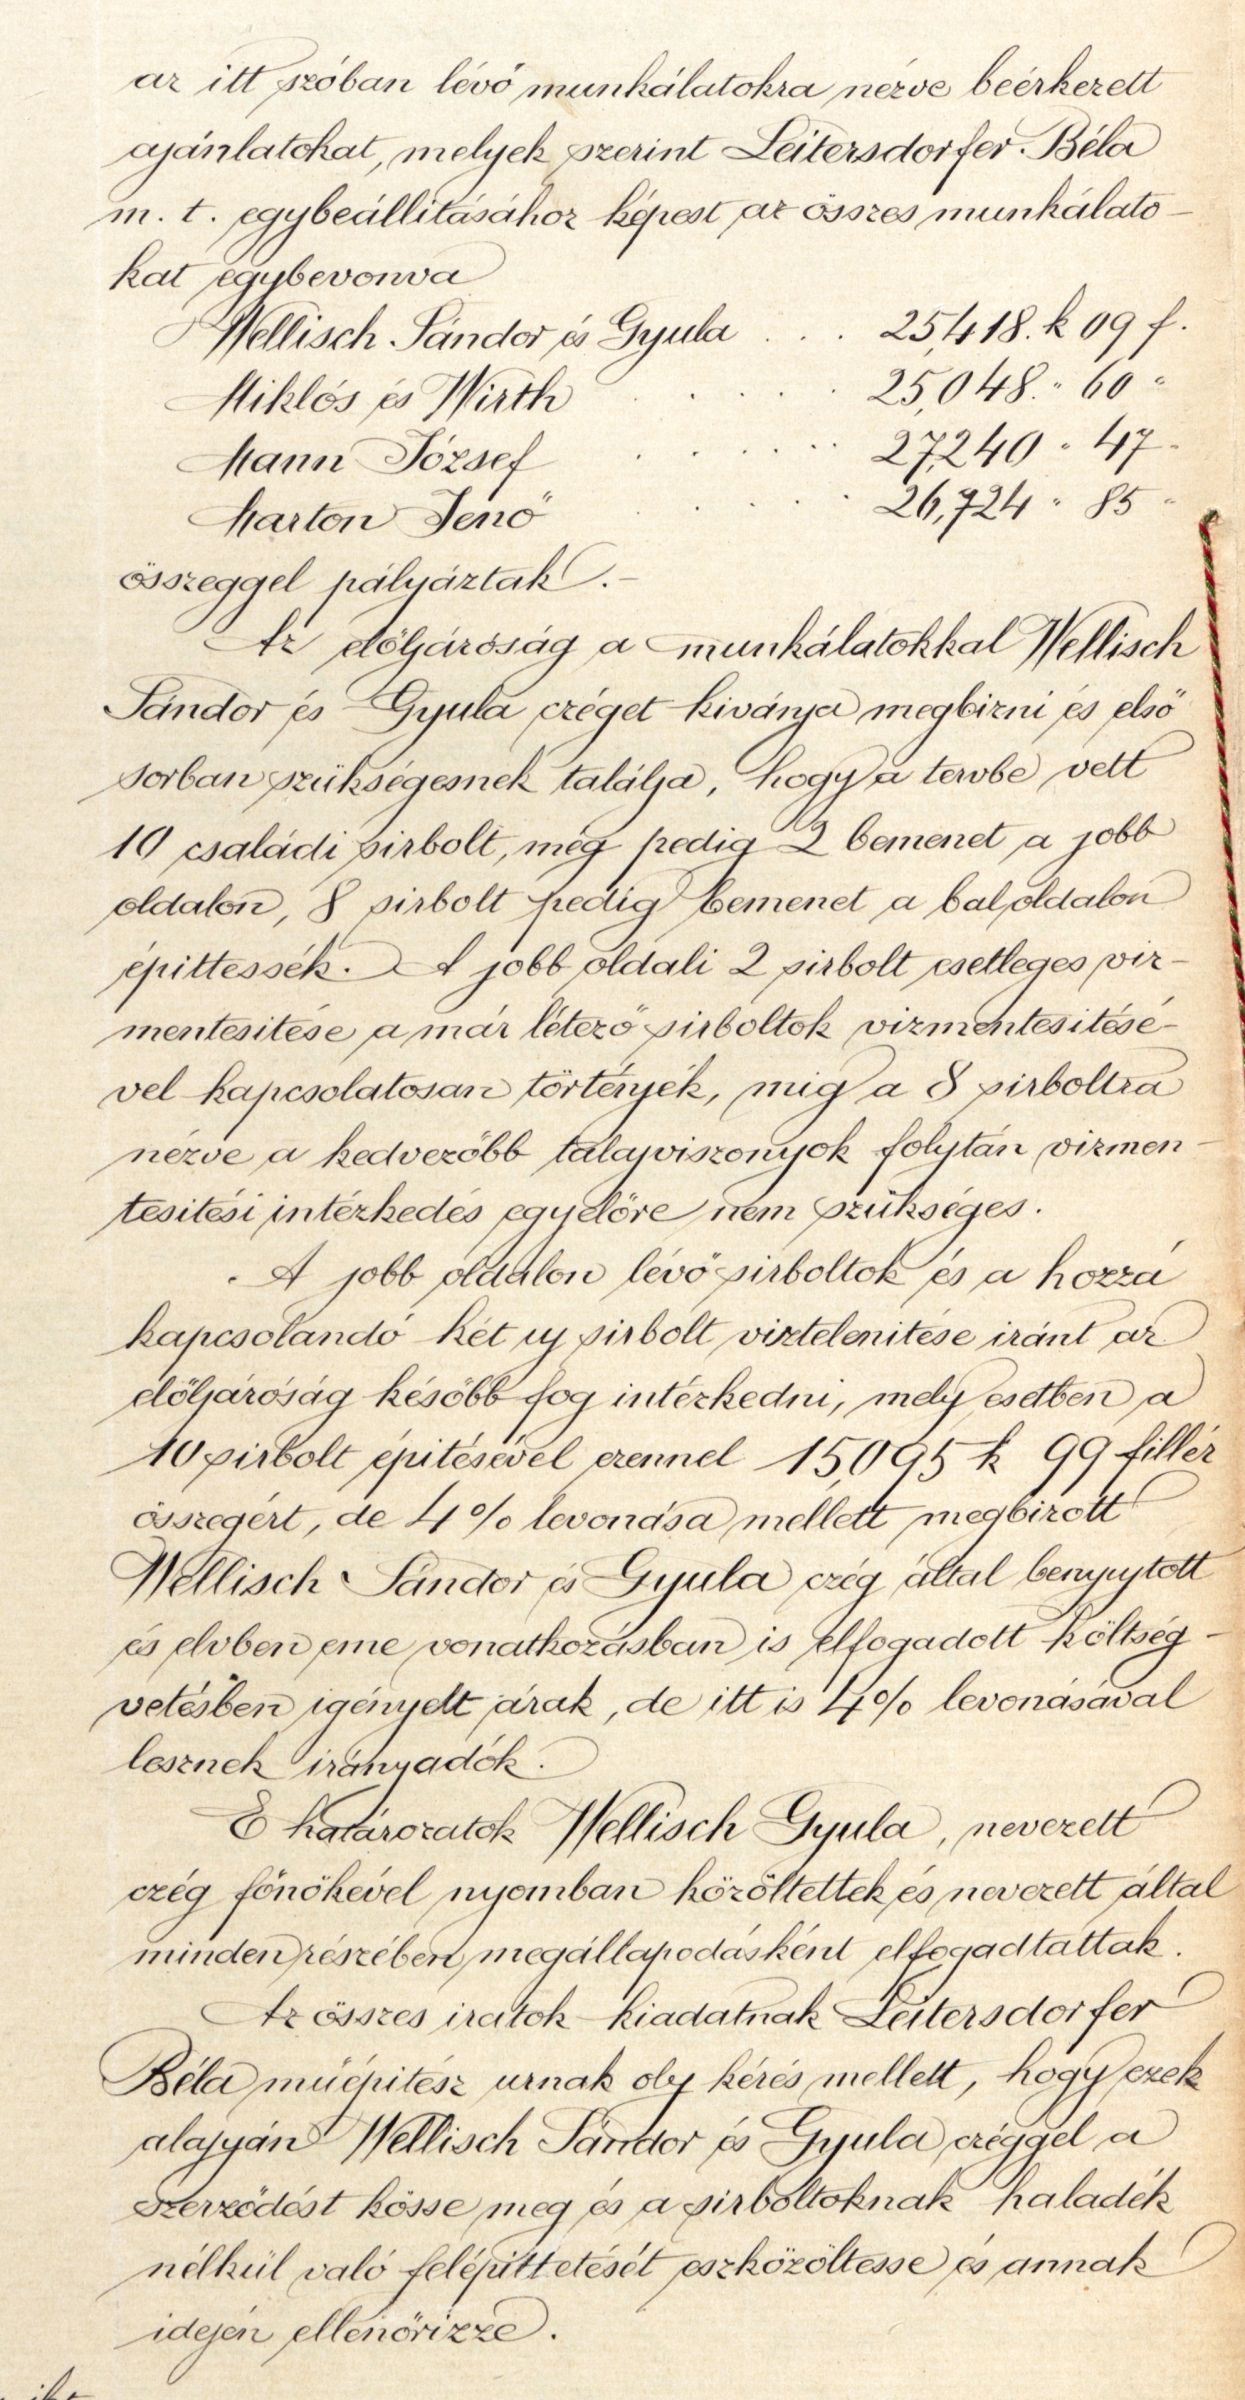 az itt szóban lévő munkálatokra nézve beérkezett
ajánlatokat, melyek szerint Leitersdorfer Béla
m. t. egybeállitásához képest az összes munkálato-
kat egybevonva
Wellisch Sándor és Gyula . . . 25,418. k 09 f.
Miklós és Wirth . . . . . 25,048. " 60 "
Mann József . . . . . 27,240 " 47 "
Marton Jenő . . . . 26,724 " 85 "
összeggel pályáztak. –
Az előljáróság a munkálatokkal Wellisch
Sándor és Gyula czéget kivánja megbizni és első
sorban szükségesnek találja, hogy a tervbe vett
10 családi sirbolt, még pedig 2 bemenet a jobb
oldalon, 8 sirbolt pedig bemenet a baloldalon
épittessék. A jobb oldali 2 sirbolt esetleges viz-
mentesitése a már létező sirboltok vizmentesitésé-
vel kapcsolatosan történjék, mig a 8 sirboltra
nézve a kedvezőbb talajviszonyok folytán vizmen-
tesitési intézkedés egyelőre nem szükséges.
A jobb oldalon lévő sirboltok és a hozzá
kapcsolandó két uj sirbolt viztelenitése iránt az
előljáróság később fog intézkedni, mely esetben a
10 sirbolt épitésével ezennel 15,095 k 99 fillér
összegért, de 4% levonása mellett megbizott
Wellisch Sándor és Gyula czég által benyujtott
és elvben eme vonatkozásban is elfogadott költség-
vetésben igényelt árak, de itt is 4% levonásával
lesznek irányadók.
E határozatok Wellisch Gyula, nevezett
czég főnökével nyomban közöltettek és nevezett által
minden részében megállapodásként elfogadtattak.
Az összes iratok kiadatnak Leitersdorfer
Béla műépitész urnak oly kérés mellett, hogy ezek
alapján Wellisch Sándor és Gyula czéggel a
szerződést kösse meg és a sirboltoknak haladék
nélkül való felépittetését eszközöltesse és annak
idején ellenőrizze.